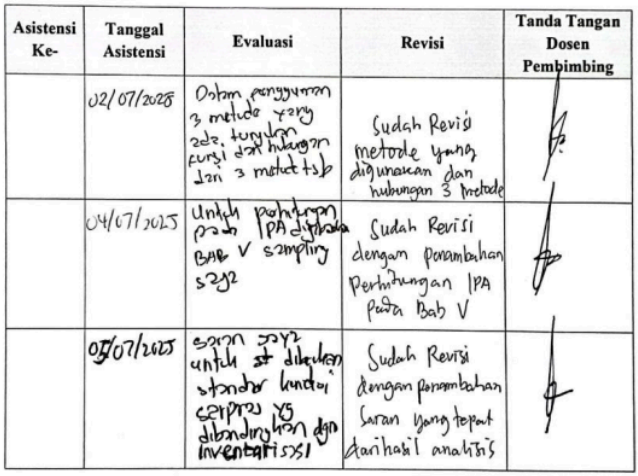 Asistensi Ke-
Tanggal Asistensi
Evaluasi
Revisi
Tanda Tangan Dosen Pembimbing
02/07/2025
Dalam penggunaan
3 metode yang
ada,
dan hubungan
dari 3 metode tsb
Sudah Revisi
metode yang
digunakan dan
hubungan 3 metode
04/07/2025
Untuk perhitungan
pada IPA
BAB V sampling
saja
Sudah Revisi
dengan penambahan
Perhitungan IPA
Pada Bab V
05/07/2025
saran saya
untuk
standar
sarpras yg
dibandingkan dgn
inventarisasi
Sudah Revisi
dengan penambahan
Saran yang tepat
dari hasil analisis